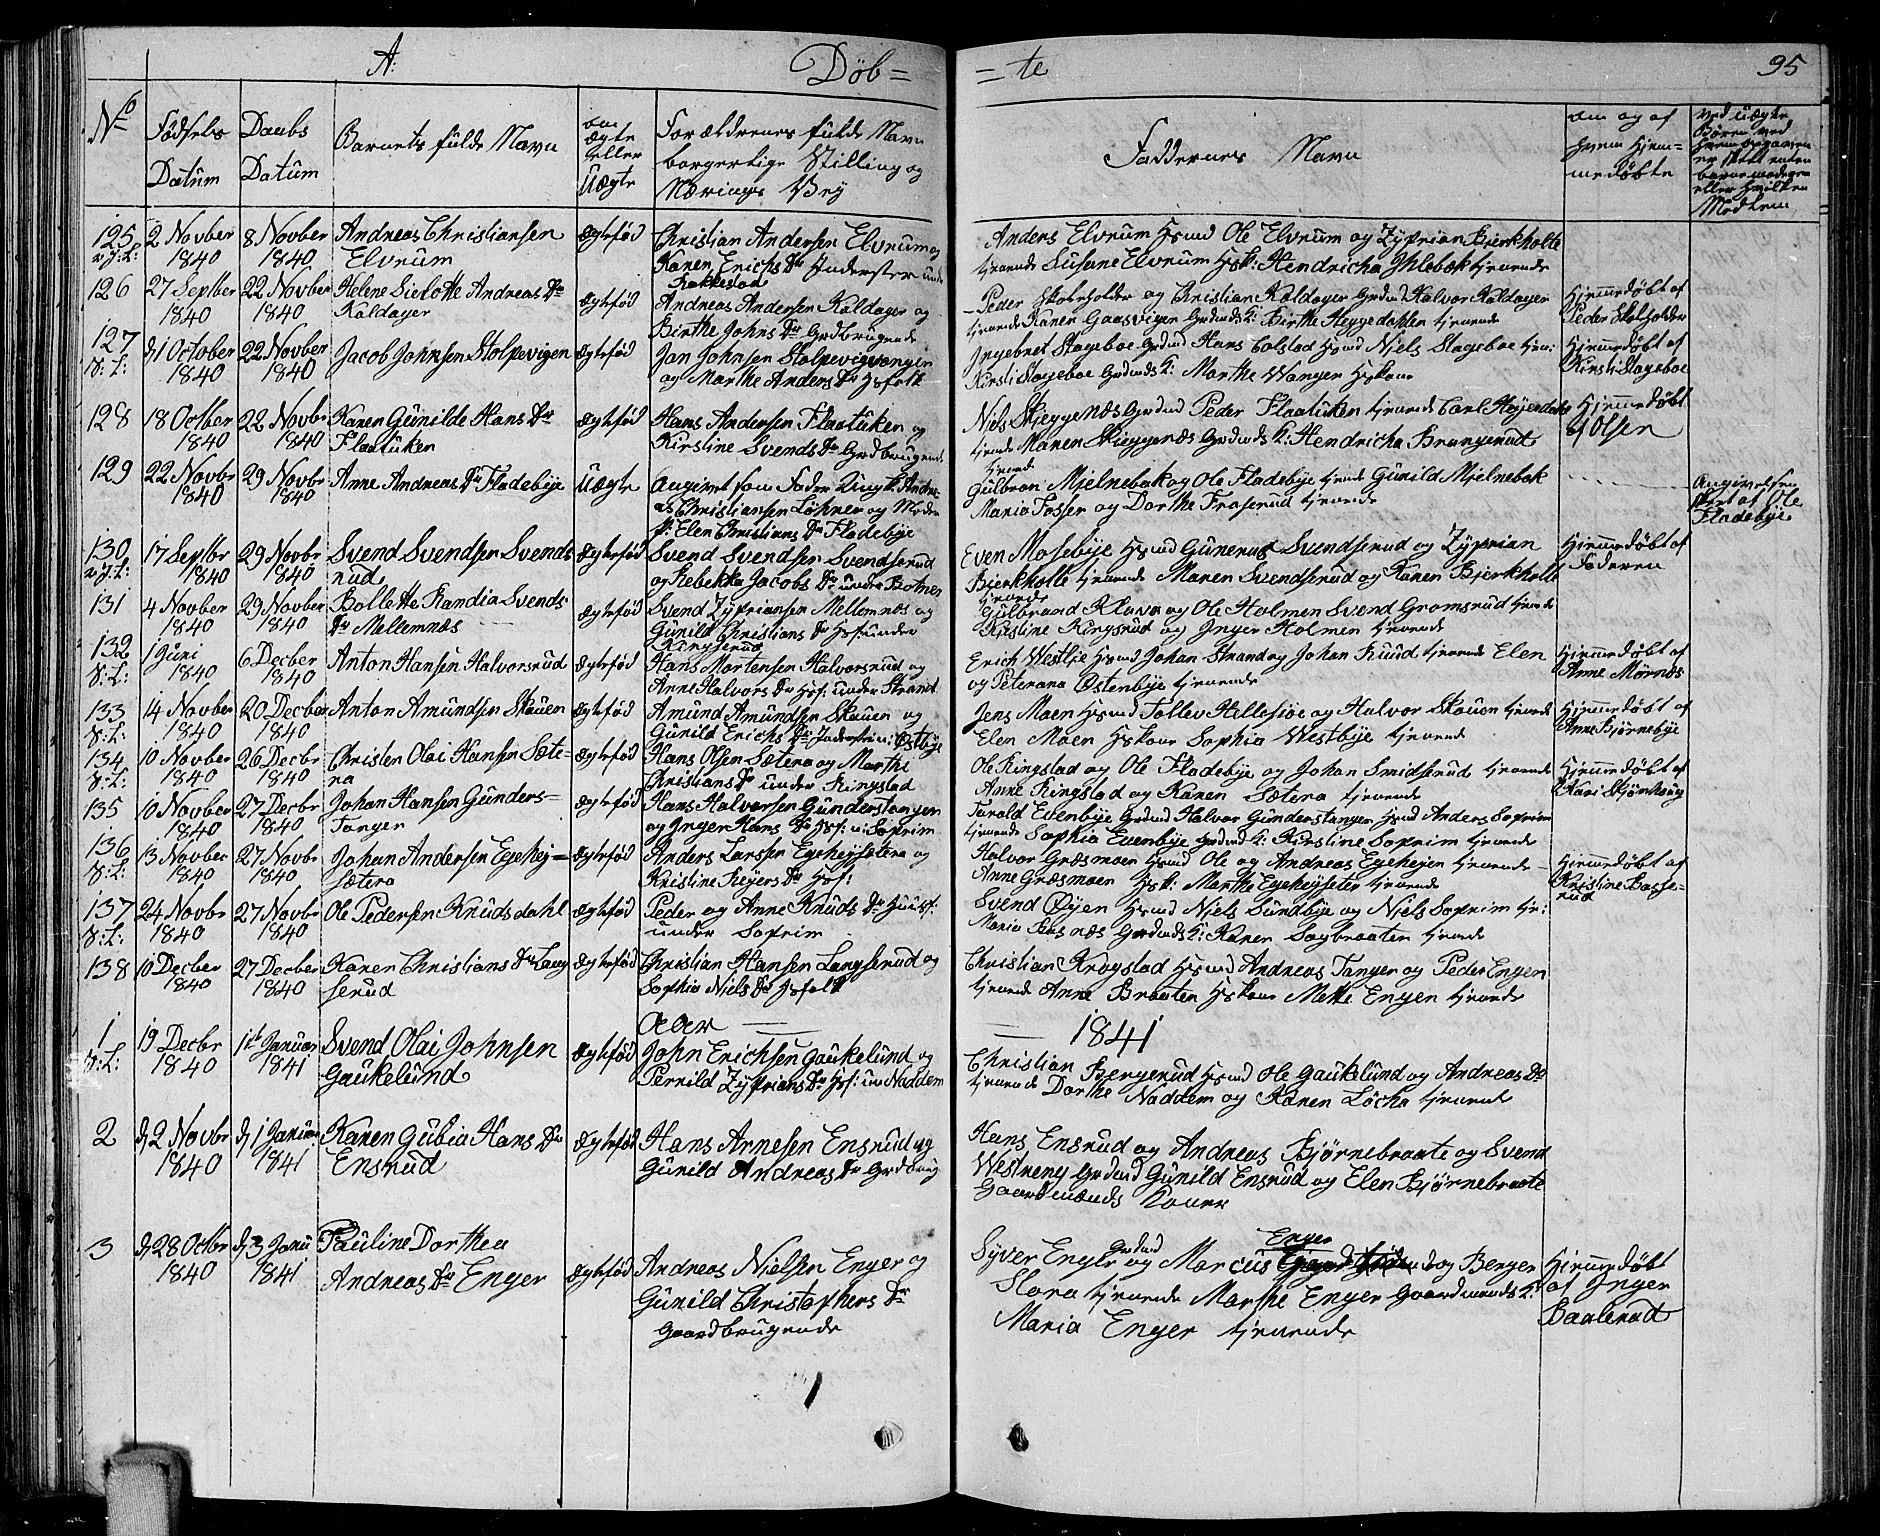 A:
Døb=
=te
95
No
Fødsels
Datum
Daabs
Datum
Barnets fulde Navn
om
ægte
eller
Uægte
Forældrenes fulde Navn
borgerlige Stilling og
Nærings Vej
Faddernes Navn
om og af
hvem Hjem=
medøbte
ved uægte
Børn ved
er skeet enten
eller hvilken
125
2 Novber
1840
8 Novber
1840
Andreas Christiansen
Elvrum
ægtefød
Christian Andersen Elvrum og
Karen Erichs Dr Inderster under
Rakkestad
Anders Elvrum Hsmd Ole Elvrum og Zyprian Bjerkholte
tjenende Susane Elvrum Hsk: Hendricha Ihlebæk tjenende
126
27 Septber
1840
22 Novber
1840
Helene Lielotte Andreas Dr
Kaldager
ægtefød
Andreas Andersen Kaldager og
Birthe Johns Dr Grdbrugende
Peder Skoleholder og Christian Kaldager Grdmd Halvor Kaldager
tjenende Karen Gaasvigen Grdmds K: Birthe Heggedahlen tjenende
Hjemmedøbt af
Peder Skolholder
127
V: L:
d 1 October
1840
22 Novber
1840
Jacob Johnsen Stolpevigen
ægtefød
Jan Johnsen Stolpevigvangen
og Marthe Anders Dr Hsfolk
Ingebret Slageboe Grdmd Hans Colstad Hsmd Niels Slageboe tjen:
Kirsti Slageboe Grdmds K: Marthe Wanger Hskone
Hjemmedøbt af
Kirsti Slageboe
128
18 Octber
1840
22 Novbr
1840
Karen Gunilde Hans Dr
Flaatuken
ægtefød
Hans Andersen Flaatuken og
Kirstine Svends Dr Grdbrugende
Niels Skjeggenæs Grdmd Peder Flaatuken tjenende Carl Heyendahl
tjende Maren Skjeggenæs Grdmds K: Hendricha Brangerud
tjende
Hjemmedøbt
af Olsen
129
22 Novbr
1840
29 Novbr
1840
Anne Andreas Dr Fladebye
Uægte
Angivet som Fader Ungk. Andre
as Christiansen Løhner og Moder
p: Elen Christians Dr Fladebye
Gulbran Mjelnebak og Ole Fladebye tjende Gunild Mjelnebak
Maria Fosser og Dorthe Fraserud tjenende
Angivelsen
skeet af Ole
Fladebye
130
17 Septbr
1840
29 Novbr
1840
Svend Svendsen Svends
rud
ægtefød
Svend Svendsen Svendserud
og Rebekka Jacobs Dr under Botner
Even Mosebye Hsmd Gunerus Svendserud og Zyprian
Bjerkholte tjenende Maren Svendserud og Karen Bjerkholte
tjenende
Hjemmedøbt af
Faderen
131
4 Novber
1840
29 Novber
1840
Bollette Randia Svends
Dr Mellemnæs
ægtefød
Svend Zypriansen Mellemnæs og
Gunild Christians Dr Hsf under
Ringserud
Gulbrand Klava og Ole Holmen Svend Gromsrud tjende
Kirstine Ringsrud og Inger Holmen tjenende
132
V: L:
1 Juni
1840
6 Decber
1840
Anton Hansen Halvorsrud
ægtefød
Hans Mortensen Halvorsrud og
Anne Halvors Dr Hsf: under Strand
Erich Westbye Hsmd Johan Strand og Johan Ruud tjenende Elen
og Peterana Østenbye tjenende
Hjemmedøbt af
Anne Mørnæs
133
V: L:
14 Novber
1840
20 Decber
1840
Anton Amundsen Skauen
ægtefød
Amund Amundsen Skauen og
Gunild Erichs Dr Inderster u: Østbye
Jens Moen Hsmd Tollev Hillesiøe og Halvor Skauen tjenende
Elen Moen Hskone Sophia Westbye tjenende
Hjemmedøbt af
Anne Bjørnebye
134
V: L:
10 Novber
1840
26 Decbr
1840
Christen Olai Hansen Sæte=
ra
ægtefød
Hans Olsen Sætera og Marthe
Christians Dr under Ringstad
Ole Ringstad og Ole Fladebye og Johan Smidserud tjenende
Anne Ringstad og Karen Sætera tjenende
Hjemmedøbt af
Kari Skjønhaug
135
10 Novber
1840
27 Decbr
1840
Johan Hansen Gunders=
Tanger
ægtefød
Hans Halvorsen Gunderstangen
og Inger Hans Dr Hsf: u: Soprim
Tarald Evenbye Grdmd Halvor Gunderstangen Hsmd Anders Soprim
tjenende Sophia Evenbye Grdmds K: Kirstine Soprim tjenende
136
V: L:
13 Novber
1840
27 Novbr
1840
Johan Andersen Egehej=
Sætera
ægtefød
Anders Larssen Egehejsetera og
Kristine Reyers Dr Hsf:
Halvor Græsmoen Hsmd Ole og Andreas Egehejen tjenende
Anne Græsmoen Hsk: Marthe Egehejseter tjenende
Hjemmedøbt af
Kristine Basse=
rud
137
V: L:
24 Novbr
1840
27 Novbr
1840
Ole Pedersen Knudsdahl
ægtefød
Peder og Anne Knuds Dr Huusf:
under Soprim
Svend Øyen Hsmd Niels Sundbye og Niels Soprim tje:
Maria Aasnæs Grdmds K: Karen Sagbraaten tjenende
138
10 Decber
1840
27 Decber
1840
Karen Christians Dr Lang
serud
ægtefød
Christian Hansen Langserud og
Sophia Niels Dr Hsfolk
Christian Krogstad Hsmd Andreas Tanger og Peder Engen
tjenende Anne Braaten Hskone Mette Engen tjenende
Aar
1841
1
V: L:
19 Decbr
1840
1 Januar
1841
Svend Olai Johnsen
Gaukelund
ægtefød
John Erichsen Gaukelund og
Pernild Zyprians Dr Hsf: un Naddem
Christian Bergerud Hsmd Ole Gaukelund og Andreas Do
tjenende Dorthe Naddem og Karen Løcha tjenende
2
d 2 Novbr
1840
d 1 Januar
1841
Karen Gubia Hans Dr
Ensrud
ægtefød
Hans Arnesen Ensrud og
Gunild Andreas Dr Grdbrug
Hans Ensrud og Andreas Bjørnebraate og Svend
Westreng Grdmd Gunild Ensrud og Elen Bjørnebraate
Gaardmænds Koner
3
d 28 Octbr
1840
d 3 Janu
1841
Pauline Dorthea
Andreas Dr Enger
ægtefød
Andreas Nielsen Enger og
Gunild Christophers Dr
Gaardbrugende
Enger
Syver Enger Grdmd og Marcus og Berger
Slora tjenende Marthe Enger Gaardmands K:
Maria Enger tjenende
Hjemmedøbt
af Inger
Baalerud